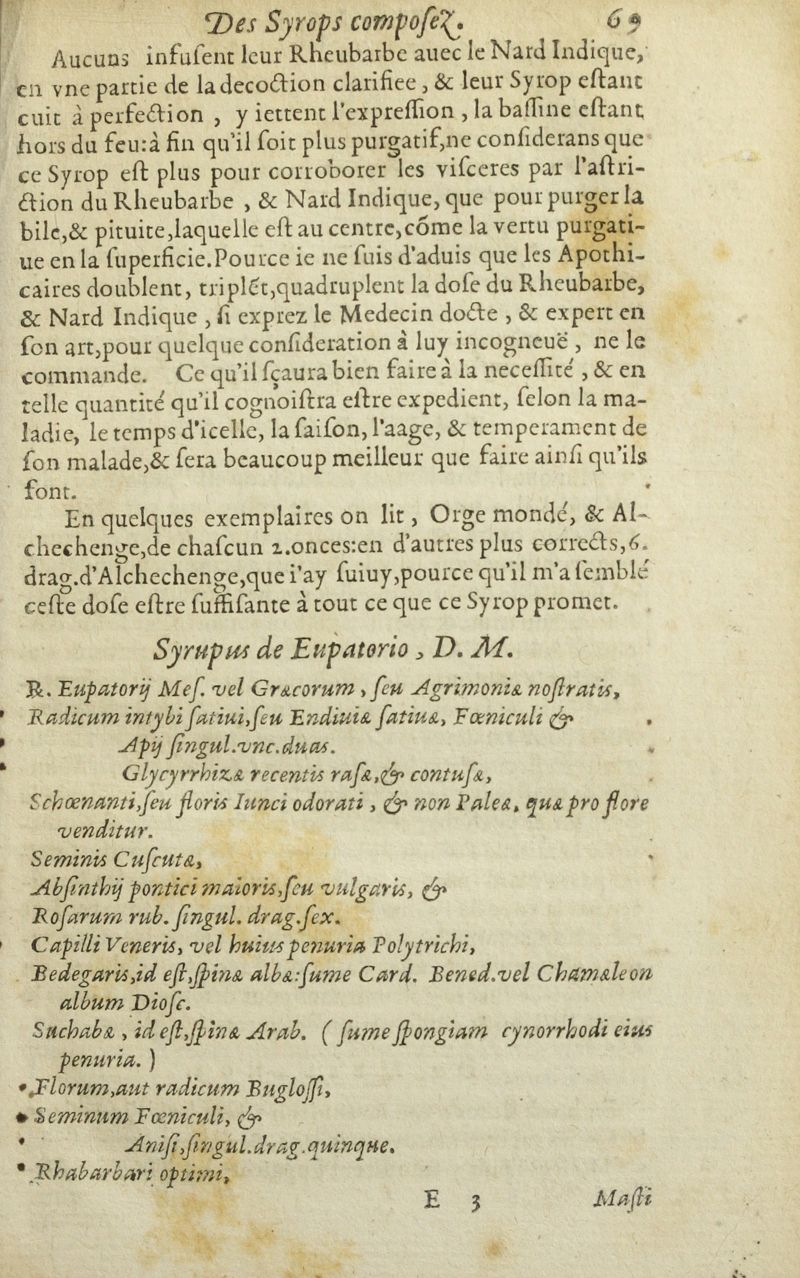 Des Syrops compoſez. 69
Aucuns infuſent leur Rheubarbe auec le Nard Indique,
en vne partie de la decoction clarifiee, & leur Syrop eſtant
cuit à perfection , y iettent l'expreſſion , la baſſine eſtant
hors du feu:à fin qu'il ſoit plus purgatif,ne conſiderans que
ce Syrop eſt plus pour corroborer les viſceres par l'aſtri-
ction du Rheubarbe , & Nard Indique, que pour purger la
bile,& pituite,laquelle eſt au centre,cõme la vertu purgati-
ue en la ſuperficie.Pource ie ne ſuis d'aduis que les Apothi-
caires doublent, triplẽt,quadruplent la doſe du Rheubarbe,
& Nard Indique , ſi exprez le Medecin docte , & expert en
ſon art,pour quelque conſideration à luy incogneuë , ne le
commande. Ce qu'il ſçaura bien faire à la neceſſité , & en
telle quantité qu'il cognoiſtra eſtre expedient, ſelon la ma-
ladie, le temps d'icelle, la ſaiſon, l'aage, & temperament de
ſon malade,& ſera beaucoup meilleur que faire ainſi qu'ils
font.
En quelques exemplaires on lit, Orge mondé, & Al-
chechenge,de chaſcun 2.onces:en d'autres plus corrects,6.
drag.d'Alchechenge,que i'ay ſuiuy,pource qu'il m'a ſemblé
ceſte doſe eſtre ſuffiſante à tout ce que ce Syrop promet.
Syrupus de Eupatorio , D. M.
℞. Eupatorij Meſ. vel Græcorum , ſeu Agrimoniæ noſtratis,
Radicum intybi ſatiui,ſeu Endiuiæ ſatiuæ, Fœniculi &
Apij ſingul.vnc.duas.
Glycyrrhizæ recentis raſæ,& contuſæ,
Schœnanti,ſeu floris Iunci odorati , & non Paleæ, quæ pro flore
venditur.
Seminis Cuſcutæ,
Abſinthij pontici maioris,ſeu vulgaris, &
Roſarum rub. ſingul. drag.ſex.
Capilli Veneris, vel huius penuria Polytrichi,
Bedegaris,id eſt,ſpinæ albæ:ſume Card. Bened.vel Chamæleon
album Dioſc.
Suchabæ , id eſt,ſpinæ Arab. ( ſume ſpongiam cynorrhodi eius
penuria. )
Florum,aut radicum Bugloſſi,
Seminum Fœniculi, &
Aniſi,ſingul.drag.quinque.
Rhabarbari optimi,
E 3 Maſti